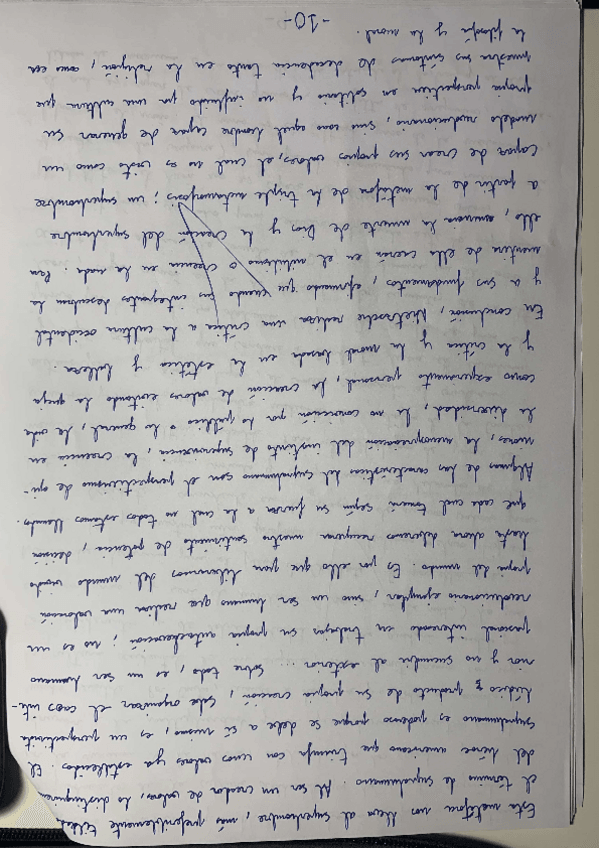 Esta metáfora nos lleva al superhombre, más preferiblemente
el término de suprahumano. Al ser un creador de valores, lo distinguimos
del héroe americano que triunfa con unos valores ya establecidos. El
suprahumano es poderoso porque se debe a sí mismo, es un perspectivista
lúdico producto de su propia creación, sabe organizar el caos inte-
rior y no sucumbir al exterior... sobre todo, es un ser humano
pasional interesado en trabajar su propia autoliberación; no es un
revolucionario ejemplar, sino un ser humano que realiza una valoración
propia del mundo. Es por ello que para liberarnos del mundo vivido
hasta ahora debemos recuperar nuestro sentimiento de potencia, decisión
que cada cual tomará según su fuerza a la cual no todos estamos llamados.
Algunas de las características del suprahumano son el perspectivismo de
miores, la incorporación del instinto de supervivencia, la creencia en
la diversidad, la no convicción por lo público o lo general, la vida
como experimento personal, la creación de valores evitando la queja
y la crítica y la moral basada en la estética y belleza.
En conclusión, Nietzsche realiza una crítica a la cultura occidental
y a sus fundamentos, afirmando que cuando sus integrantes descubran la
mentira de ella caerán en el nihilismo o creencia en la nada. Por
ello, anuncia la muerte de Dios y la creación del superhombre
a partir de la metáfora de la triple metamorfosis; un superhombre
capaz de crear sus propios valores, el cual no es visto como un
modelo revolucionario, sino como aquel hombre capaz de generar su
propia perspectiva en solitario y no influido por una cultura que
muestra sus síntomas de decadencia tanto en la religión, como en
la filosofía y la moral.
-10-